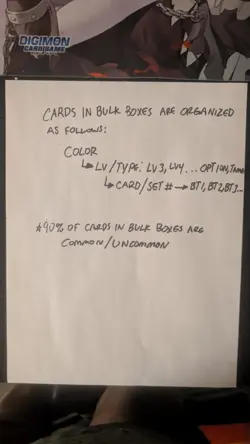 DIGIMON
CARD GAME
CARDS IN BULK BOXES ARE ORGANIZED
AS FOLLOWS:
COLOR
↳ LV/TYPE: LV3, LV4 ... OPTION, TAMER
↳ CARD/SET # → BT1, BT2, BT3...
*90% OF CARDS IN BULK BOXES ARE
COMMON/UNCOMMON